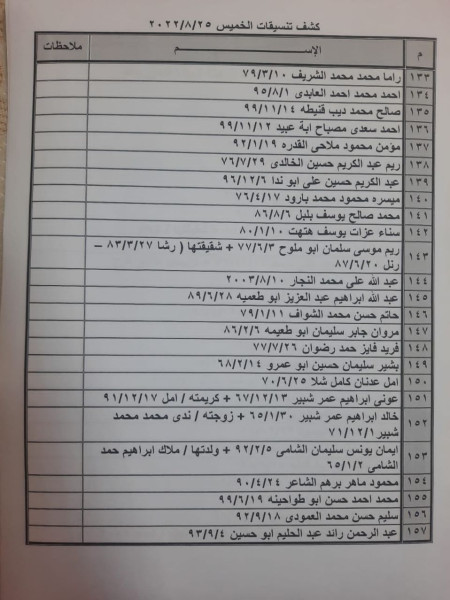 كشف تنسيقات الخميس ٢٠٢٢/٨/٢٥
م الإســـم ملاحظات
١٣٣ راما محمد محمد الشريف ٧٩/٣/١٠
١٣٤ احمد محمد احمد العابدى ٩٥/٨/١
١٣٥ صالح محمد ديب قنيطه ٩٩/١١/١٤
١٣٦ احمد سعدى مصباح ابة عبيد ٩٩/١١/١٢
١٣٧ مؤمن محمود ملاحى القدره ٩٢/١/١٩
١٣٨ ريم عبد الكريم حسين الخالدى ٧٦/٧/٢٩
١٣٩ عبد الكريم حسين على ابو ندا ٩٦/١٢/٦
١٤٠ ميسره محمود محمد بارود ٧٦/٤/١٧
١٤١ محمد صالح يوسف بلبل ٨٦/٨/٦
١٤٢ سناء عزات يوسف هتهت ٨٠/١/١٠
١٤٣ ريم موسى سلمان ابو ملوح ٧٧/٦/٣ + شقيقتها ( رشا ٨٣/٣/٢٧ –
رنل ٨٧/٦/٢٠
١٤٤ عبد الله على محمد النجار ٢٠٠٣/٨/١٠
١٤٥ عبد الله ابراهيم عبد العزيز ابو طعميه ٨٩/٦/٢٨
١٤٦ حاتم حسن محمد الشواف ٧٩/١/١١
١٤٧ مروان جابر سليمان ابو طعيمه ٨٦/٢/٦
١٤٨ فريد فايز حمد رضوان ٧٧/٧/٢٦
١٤٩ بشير سليمان حسين ابو عمرو ٦٨/٢/١٤
١٥٠ امل عدنان كامل شلا ٧٠/٦/٢٥
١٥١ عونى ابراهيم عمر شبير ٦٧/١٢/١٣ + كريمته / امل ٩١/١٢/١٧
١٥٢ خالد ابراهيم عمر شبير ٦٥/١/٣٠ + زوجته / ندى محمد محمد
شبير ٧١/١٢/١
١٥٣ ايمان يونس سليمان الشامى ٩٢/٢/٥ + ولدتها / ملاك ابراهيم حمد
الشامى ٦٥/١/٢
١٥٤ محمود ماهر برهم الشاعر ٩٠/٤/٢٤
١٥٥ محمد احمد حسن ابو طواحينه ٩٩/٦/١٩
١٥٦ سليم حسن محمد العمودى ٩٢/٩/١٨
١٥٧ عبد الرحمن رائد عبد الحليم ابو حسين ٩٣/٩/٤